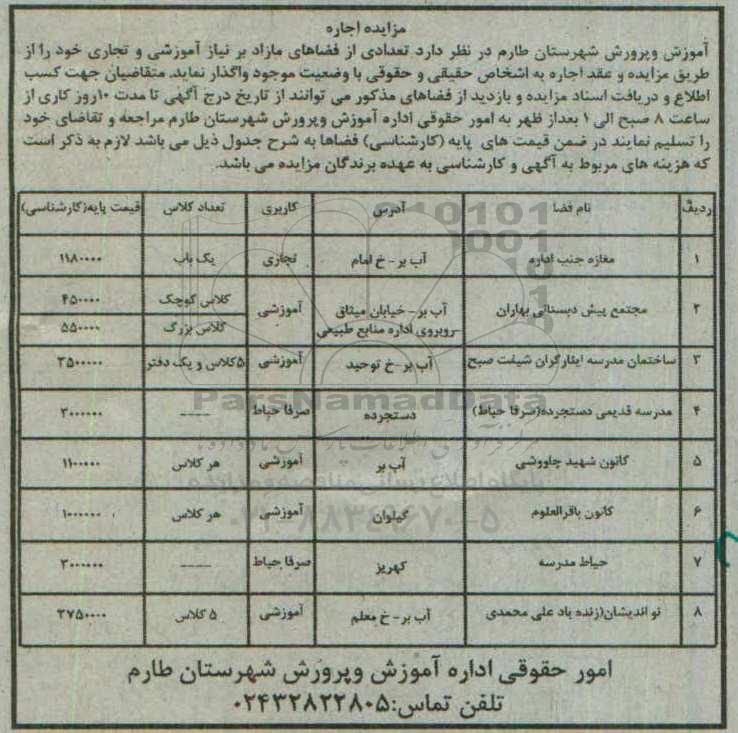 مزایده اجاره
آموزش وپرورش شهرستان طارم در نظر دارد تعدادی از فضاهای مازاد بر نیاز آموزشی و تجاری خود را از
طریق مزایده و عقد اجاره به اشخاص حقیقی و حقوقی با وضعیت موجود واگذار نماید. متقاضیان جهت کسب
اطلاع و دریافت اسناد مزایده و بازدید از فضاهای مذکور می توانند از تاریخ درج آگهی تا مدت ۱۰روز کاری از
ساعت ۸ صبح الی ۱ بعداز ظهر به امور حقوقی اداره آموزش وپرورش شهرستان طارم مراجعه و تقاضای خود
را تسلیم نمایند در ضمن قیمت های پایه (کارشناسی) فضاها به شرح جدول ذیل می باشد لازم به ذکر است
که هزینه های مربوط به آگهی و کارشناسی به عهده برندگان مزایده می باشد.
ردیف نام فضا آدرس کاربری تعداد کلاس قیمت پایه(کارشناسی)
۱ مغازه جنب اداره آب بر- خ امام تجاری یک باب ۱۱۸۰۰۰۰
۲ مجتمع پیش دبستانی بهاران آب بر- خیابان میثاق روبروی اداره منابع طبیعی آموزشی کلاس کوچک ۴۵۰۰۰۰
کلاس بزرگ ۵۵۰۰۰۰
۳ ساختمان مدرسه ایثارگران شیفت صبح آب بر-خ توحید آموزشی ۵کلاس و یک دفتر ۳۵۰۰۰۰۰
۴ مدرسه قدیمی دستجرده(صرفا حیاط) دستجرده صرفا حیاط ---- ۲۰۰۰۰۰۰
۵ کانون شهید چاووشی آب بر آموزشی هر کلاس ۱۱۰۰۰۰۰
۶ کانون باقرالعلوم گیلوان آموزشی هر کلاس ۱۰۰۰۰۰۰
۷ حیاط مدرسه کهریز صرفا حیاط ---- ۲۰۰۰۰۰۰
۸ نو اندیشان(زنده یاد علی محمدی آب بر- خ معلم آموزشی ۵ کلاس ۲۷۵۰۰۰۰
امور حقوقی اداره آموزش وپرورش شهرستان طارم
تلفن تماس:۰۲۴۳۲۸۲۲۸۰۵
ParsNamadData
۰۲۱-۸۸۳۴۹۶۷۰-۵